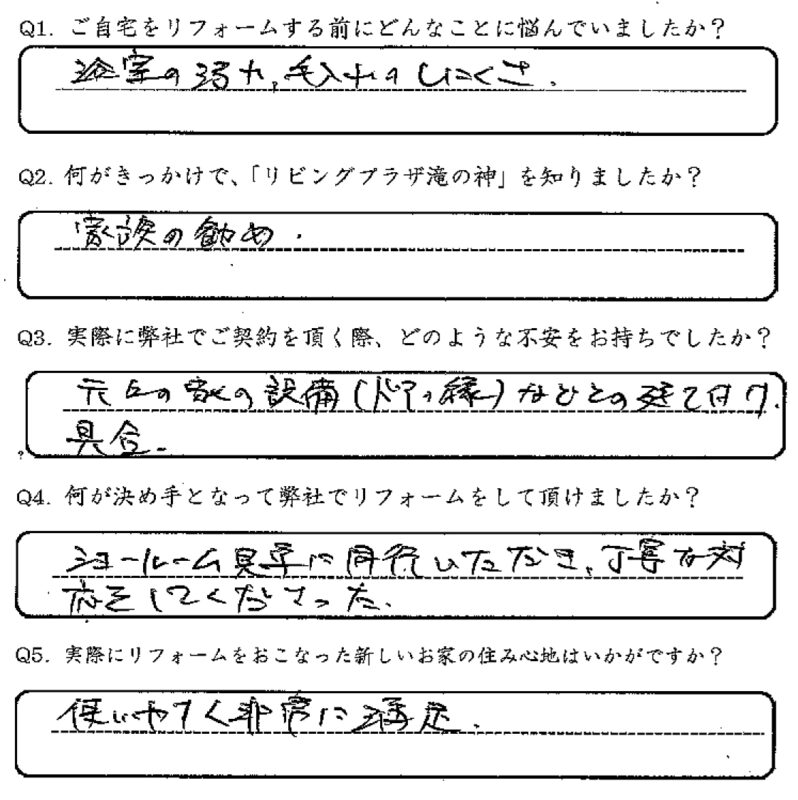 Q1. ご自宅をリフォームする前にどんなことに悩んでいましたか？
浴室の汚れ,手入れのしにくさ.
Q2. 何がきっかけで、「リビングプラザ滝の神」を知りましたか？
家族の勧め.
Q3. 実際に弊社でご契約を頂く際、どのような不安をお持ちでしたか？
元々の家の設備(ドアの縁)などとの建て付け.
具合.
Q4. 何が決め手となって弊社でリフォームをして頂けましたか？
ショールーム見学に同行いただき、丁寧な対
応をしてくださった.
Q5. 実際にリフォームをおこなった新しいお家の住み心地はいかがですか？
使いやすく非常に満足.